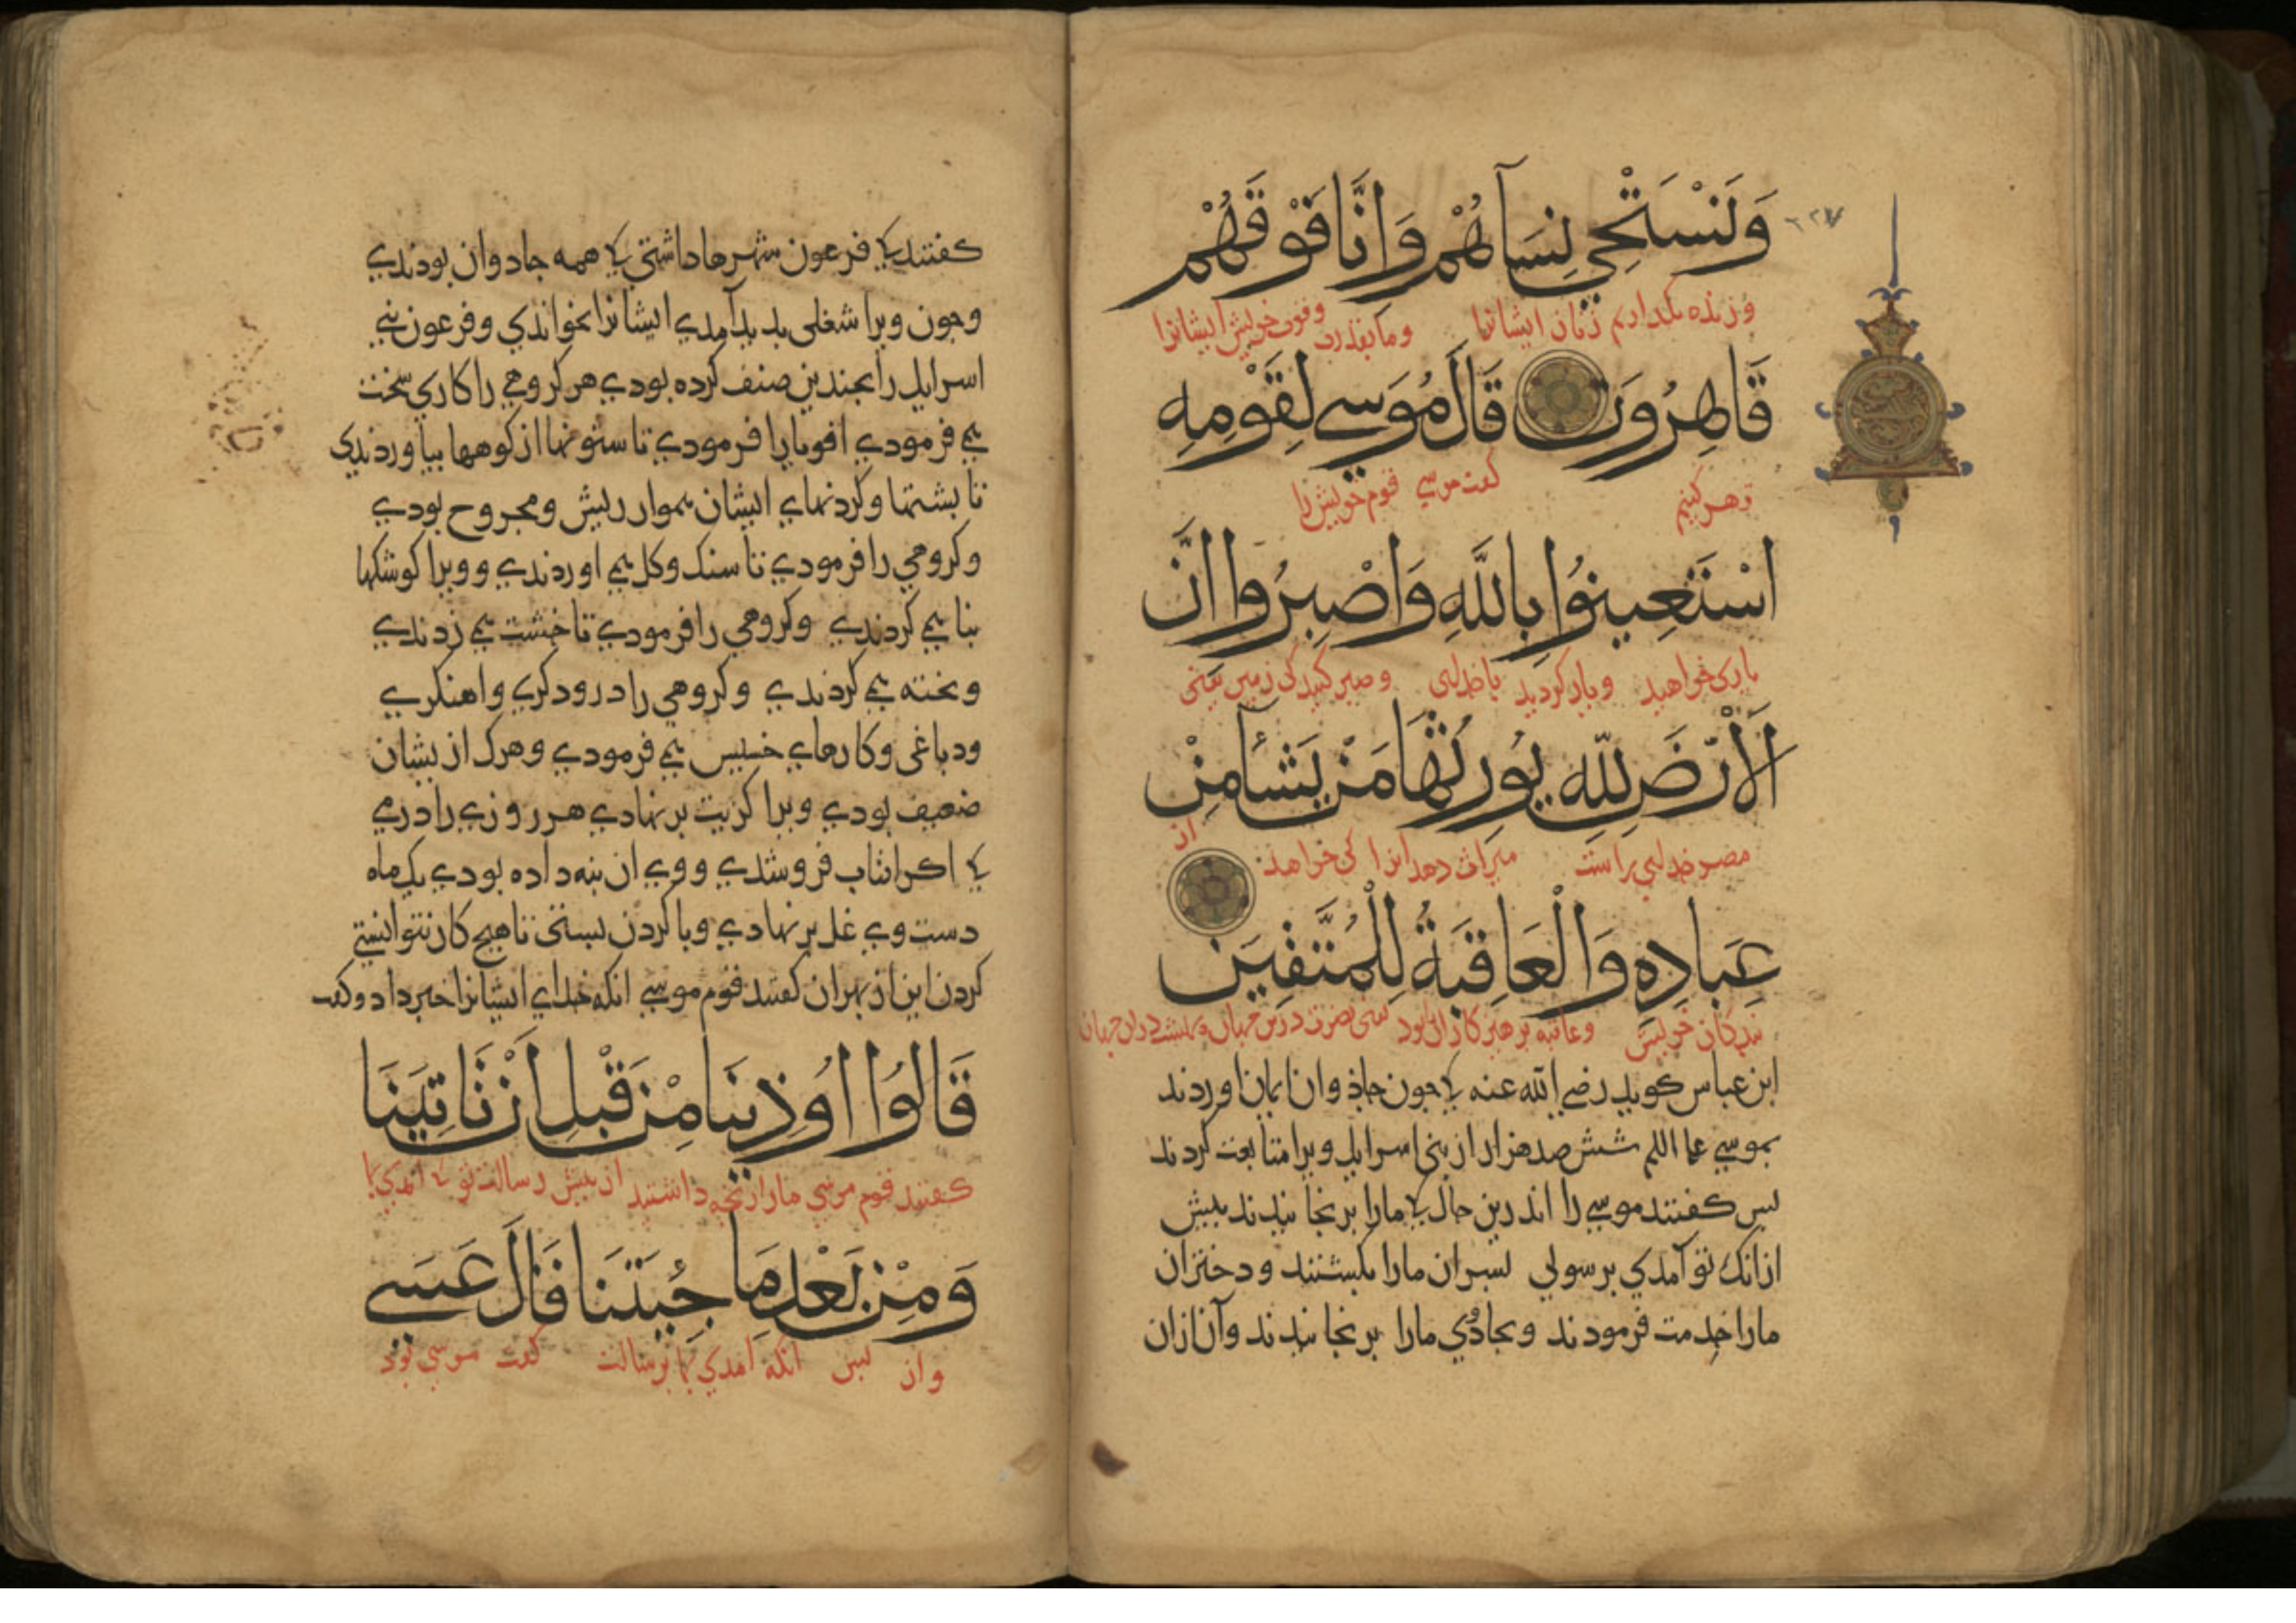 وَلَنَسْتَحْيِ نِسَآءَهُمْ وَاِنَّا فَوْقَهُمْ
وزنده بگذاریم زنان ایشانرا وما بقدرت وقوت خویش ایشانرا
قَاهِرُونَ قَالَ مُوسَي لِقَوْمِهِ
قهر کنیم گفت موسي قوم خویش را
اسْتَعِينُوا بِاللَّهِ وَاصْبِرُوا اِنَّ
یاری خواهید ویار گردید با خدای وصبر کنید کی زمین یعنی
الْاَرْضَ لِلّهِ يُورِثُهَا مَنْ يَشَآءُ مِنْ
مصر خدای راست میراث دهد انرا کی خواهد از
عِبَادِهِ وَالْعَاقِبَةُ لِلْمُتَّقِينَ
بندکان خویش وعاقبه برهیز کارانرا بود یعنی نصرت درین جهان وبهشت دران جهان
ابن عباس کوید رضي الله عنه کی جون جاذوان ایمان اوردند
بموسي علم السلم شش صد هزار از بني اسرایل ویرا متابعت کردند
بس کفتند موسي را اندرین حال کی مارا برنجانیدند بیش
ازانک تو آمدي برسولي بسران مارا بکشتند ودختران
مارا خدمت فرمودند وبجادوي مارا برنجانیدند وآن ازان
کفتند کی فرعون شهرها داشتي کی همه جادوان بودندي
وجون ویرا شغلي بدید آمدي ایشانرا بخواندي وفرعون بني
اسرایل را بجندین صنف کرده بودي هر کروهي را کاري سخت
مي فرمودي اقویا را فرمودي تا ستونها از کوهها بیاوردندي
تا بشتها وکردنهاي ایشان هموار ریش ومجروح بودي
وکروهي را فرمودي تا سنک وکل مي اوردندي وویرا کوشکها
بنا مي کردندي وکروهي را فرمودي تا خشت مي زدندي
وبخته مي کردندي وکروهي را درودکري واهنکري
ودباغي وکارهاي خسیس مي فرمودي وهرک ازیشان
ضعیف بودي ویرا کزیت برنهادي هر روزي را درمي
کی اکر افتاب فروشدي ووي ان بنه داده بودي یک ماه
دست وي غل برنهادي وبا کردن بستي تا هیج کار نتوانستي
کردن این از بهر ان کفتند قوم موسي انکه خداي ایشانرا خبر داد وکفت
قَالُوا اُوذِينَا مِنْ قَبْلِ اَنْ تَاتِيَنَا
کفتند قوم موسي مارا رنجه داشتند از بیش رسالت تو کی امدي بما
وَمِنْ بَعْدِ مَا جِئْتَنَا قَالَ عَسَي
واز بس انکه امدي بما برسالت کفت موسي بود